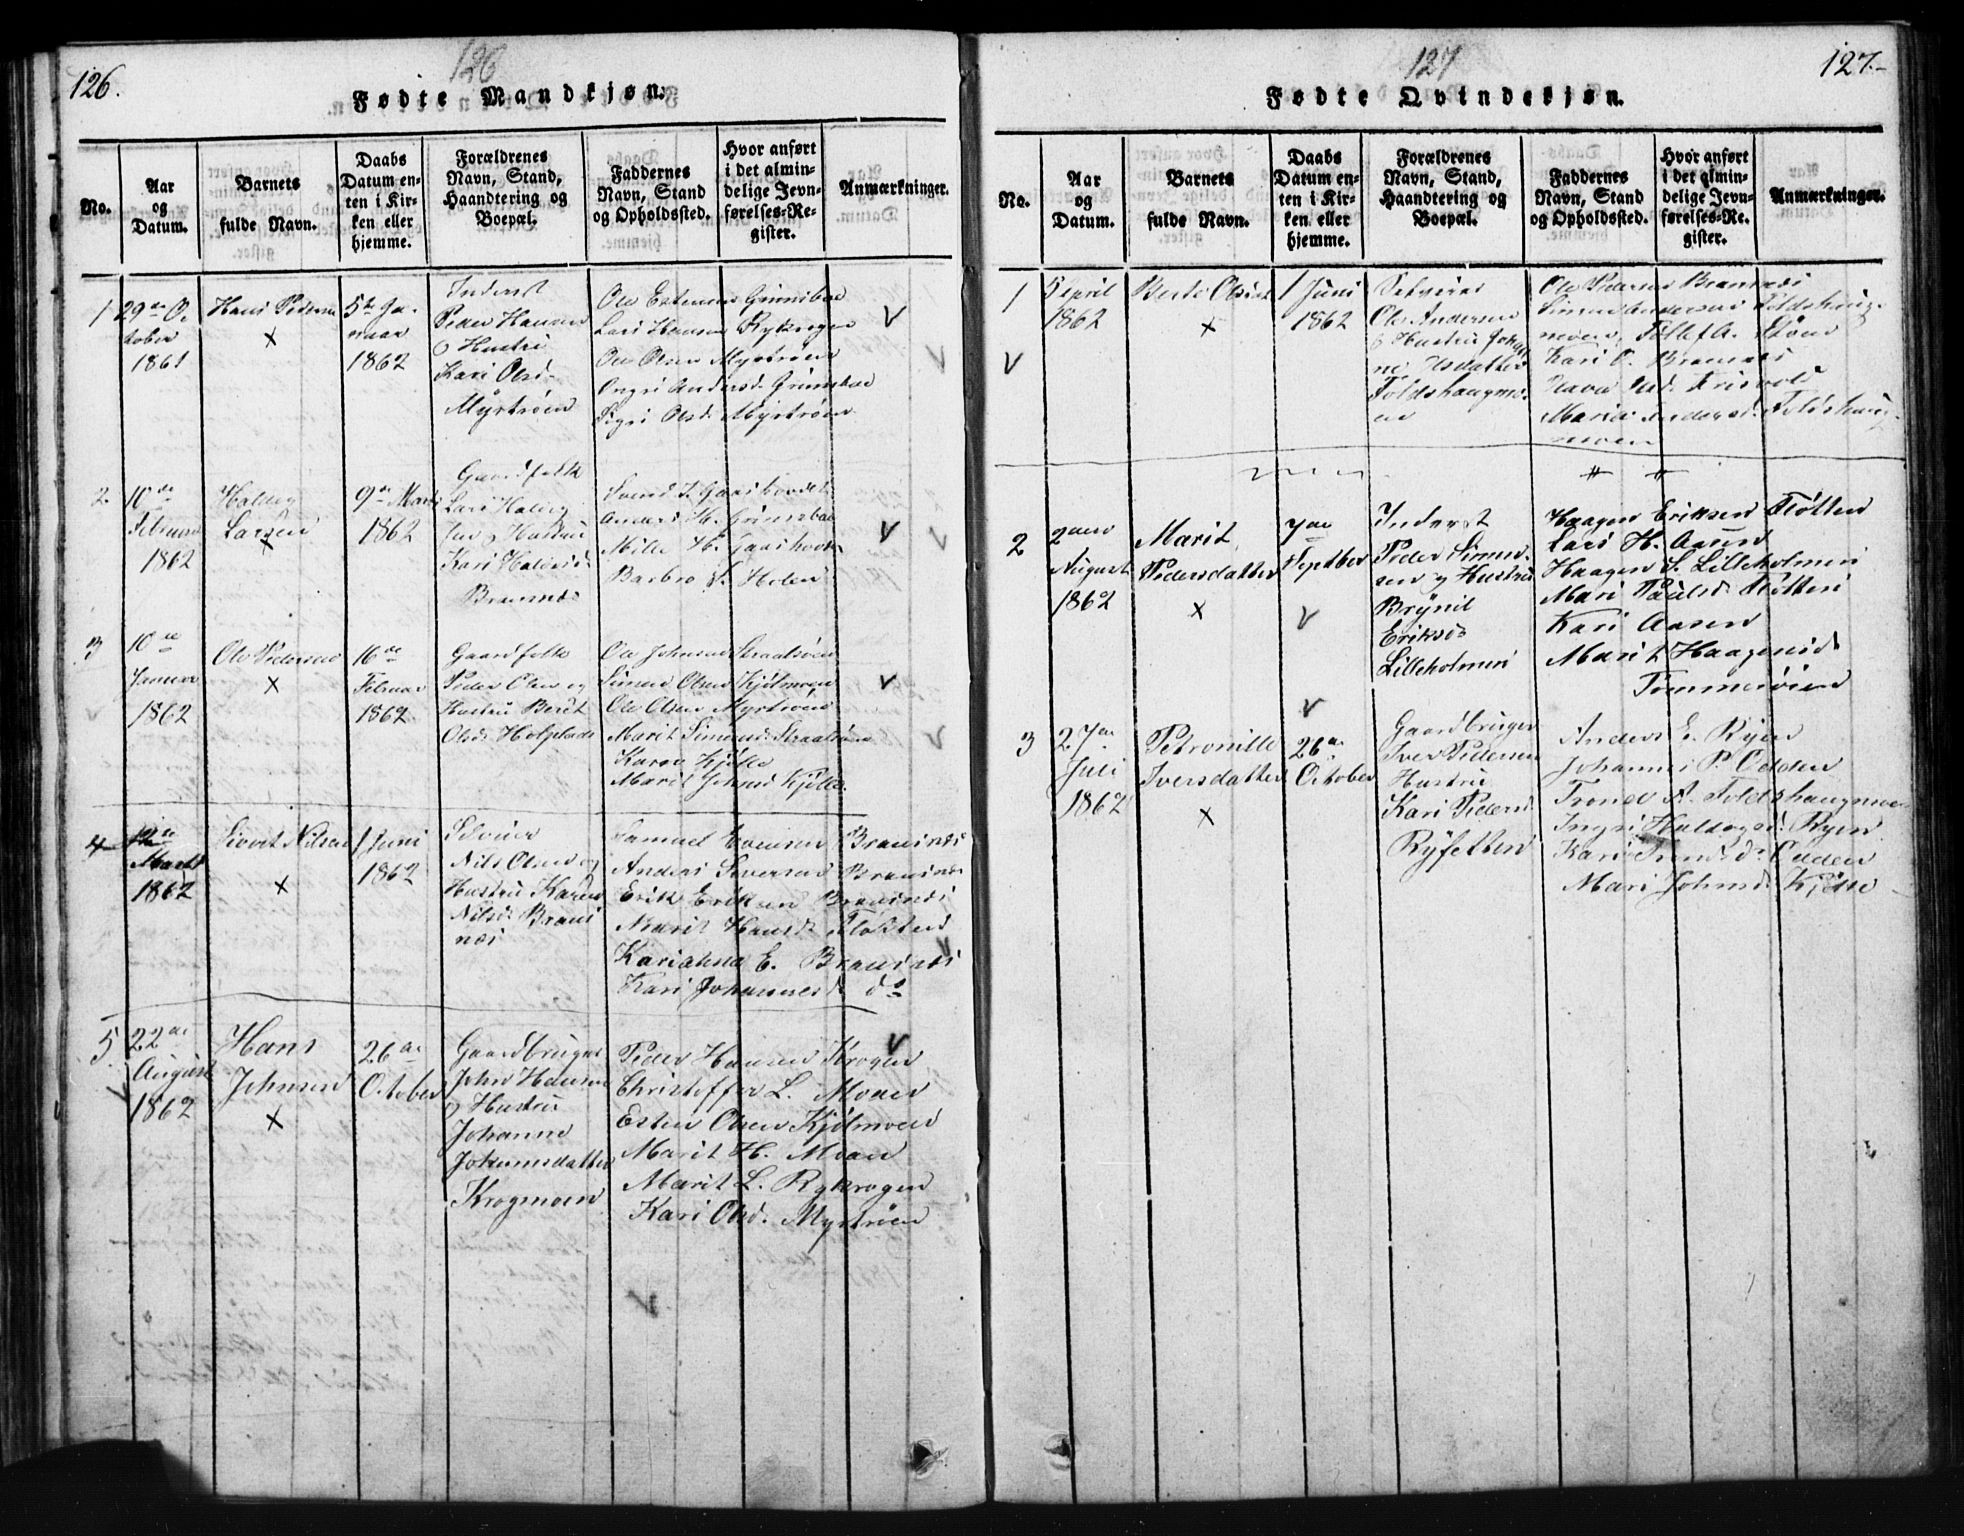 126.
126
Fødte Mandkjøn.
No.
Aar
og
Datum.
Barnets
fulde Navn.
Daabs
Datum en-
ten i Kir-
ken eller
hjemme.
Forældrenes
Navn, Stand,
Haandtering og
Boepæl.
Faddernes
Navn, Stand
og Opholdssted.
Hvor anført
i det almin-
delige Jevn-
førelses-Re-
gister.
Anmærkninger.
1
29de Oc
tober
1861
Hans Pedersen
5te Ja-
nuar
1862
Inderst
Peder Hansen
og Hustru
Kari Olsd.
Myrtrøen
Ole Estensen Grønsbae
Lars Hansen Rykrogen
Ole Olsen Myrtrøen
Ingri Andersd. Grønsbae
Sigri Olsd. Myrtrøen
2
10de
Februar
1862
Haldog
Larsen
9de Marts
1862
Gaardfolk
Lars Haldog
sen og Hustru
Kari Haldosd.
Bransnæs
Svend J. Gaashovdet
Anders H. Grønsbae
Barbro S. Holen
3
10de
Januar
1862
Ole Pedersen
16de
Februar
1862
Gaardfolk
Peder Olsen og
Hustru Berit
Olsd. Holplads
Ole Johnsen Straalsøen
Simen Olsen Kjølmoen
Ole Olsen Myrtrøen
Marit Simensd. Straalsøen
Karen Kjølle
Marit Johnsd. Kjølle
4
12de
Marts
1862
Sivert Nilsen
1 Juni
1862
Selveier
Nils Olsen og
Hustru Karen
Nilsd. Brans
næs
Samuel Evensen Bransnæs
Anders Siversen Bransnæs
Erik Eriksen Bransnæs
Marit Hansd. Fløtten
Kariahna E. Bransnæs
Kari Johannesd. do
5
22de
August
1862
Hans
Johnsen
26de
October
Gaardbruger
John Hansen
og Hustru
Johanne
Johannsdatter
Krogmoen
Peder Hansen Krogen
Christoffer L. Moan
Esten Olsen Kjølmoen
Marit H. Moan
Marit L. Rykrogen
Kari Olsd. Myrtrøen
127
127.
Fødte Qvindekjøn.
No.
Aar
og
Datum.
Barnets
fulde Navn.
Daabs
Datum en-
ten i Kir-
ken eller
hjemme.
Forældrenes
Navn, Stand,
Haandtering og
Boepæl.
Faddernes
Navn, Stand
og Opholdssted.
Hvor anført
i det almin-
delige Jevn-
førelses-Re-
gister.
Anmærkninger.
1
5 April
1862
Berte Olsdt
1 Juni
1862
Selveier
Ole Andersen
og Hustru Johan
ne Olsdatter
Foldshaugmo-
en
Ole Pedersen Bransnæs
Simen Andersen Foldshaug-
moen, Tollef A. Støen
Kari O. Bransnæs
Maria Andersd. Foldshaug-
moen
2
2den
August
1862
Marit
Pedersdatter
7de
Septber
Inderst
Peder Simen-
sen og Hustru
Brynil
Eriksd.
Lilleholmen
Haagen Eriksen Fløtten
Lars H. Aasen
Haagen S. Lilleholmen
Mari Paulsd. Fløtten
Kari Aasen
Marit Haagensd.
Tømmerøien
3
27de
Juli
1862
Petronille
Iversdatter
26de
October
Gaardbruger
Iver Pedersen
Hustru
Kari Pedersd.
Ryfetten
Anders E. Ryen
Johannes P. Odden
Trond A. Foldshaugmoen
Ingri Haldogsd. Ryen
Kari Trondsd. Odden
Mari Johnsd. Kjølle